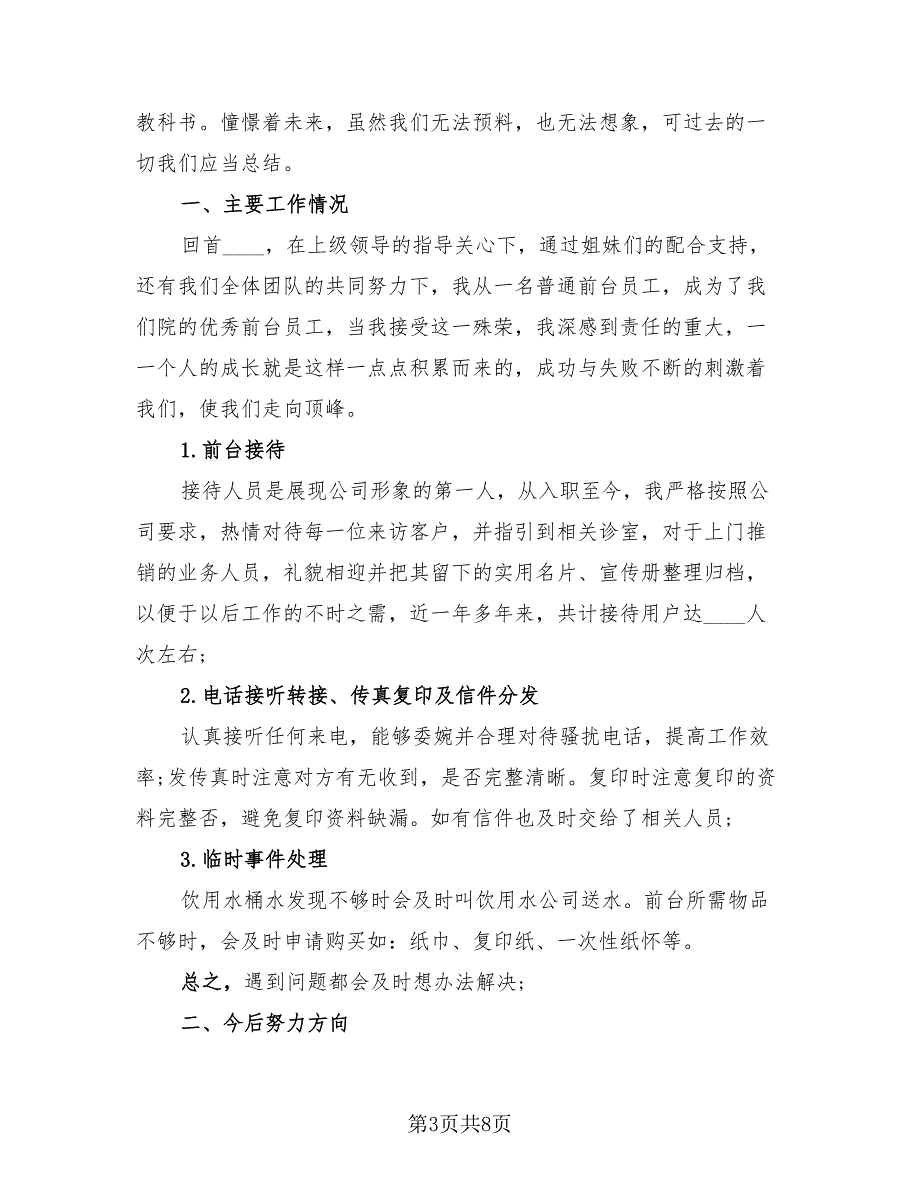 教科书。憧憬着未来，虽然我们无法预料，也无法想象，可过去的一
切我们应当总结。
一、主要工作情况
回首____，在上级领导的指导关心下，通过姐妹们的配合支持，
还有我们全体团队的共同努力下，我从一名普通前台员工，成为了我
们院的优秀前台员工，当我接受这一殊荣，我深感到责任的重大，一
一个人的成长就是这样一点点积累而来的，成功与失败不断的刺激着
我们，使我们走向顶峰。
1.前台接待
接待人员是展现公司形象的第一人，从入职至今，我严格按照公
司要求，热情对待每一位来访客户，并指引到相关诊室，对于上门推
销的业务人员，礼貌相迎并把其留下的实用名片、宣传册整理归档，
以便于以后工作的不时之需，近一年多年来，共计接待用户达____人
次左右;
2.电话接听转接、传真复印及信件分发
认真接听任何来电，能够委婉并合理对待骚扰电话，提高工作效
率;发传真时注意对方有无收到，是否完整清晰。复印时注意复印的资
料完整否，避免复印资料缺漏。如有信件也及时交给了相关人员;
3.临时事件处理
饮用水桶水发现不够时会及时叫饮用水公司送水。前台所需物品
不够时，会及时申请购买如：纸巾、复印纸、一次性纸怀等。
总之，遇到问题都会及时想办法解决;
二、今后努力方向
第3页共8页